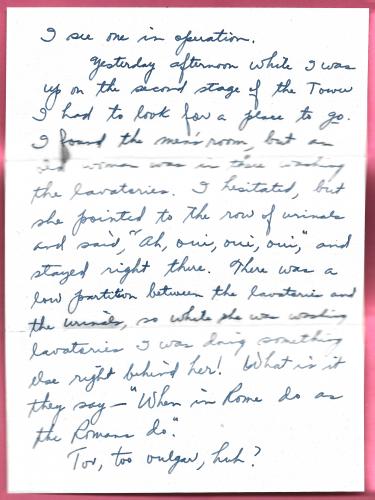 I see one in operation.
Yesterday afternoon while I was
up on the second stage of the Tower
I had to look for a place to go.
I found the men's room, but an
old woman was in there washing
the lavatories. I hesitated, but
she pointed to the row of urinals
and said, "Ah, oui, oui, oui," and
stayed right there. There was a
low partition between the lavatories and
the urinals, so while she was washing
lavatories I was doing something
else right behind her! What is it
they say - "When in Rome do as
the Romans do".
too vulgar, huh?